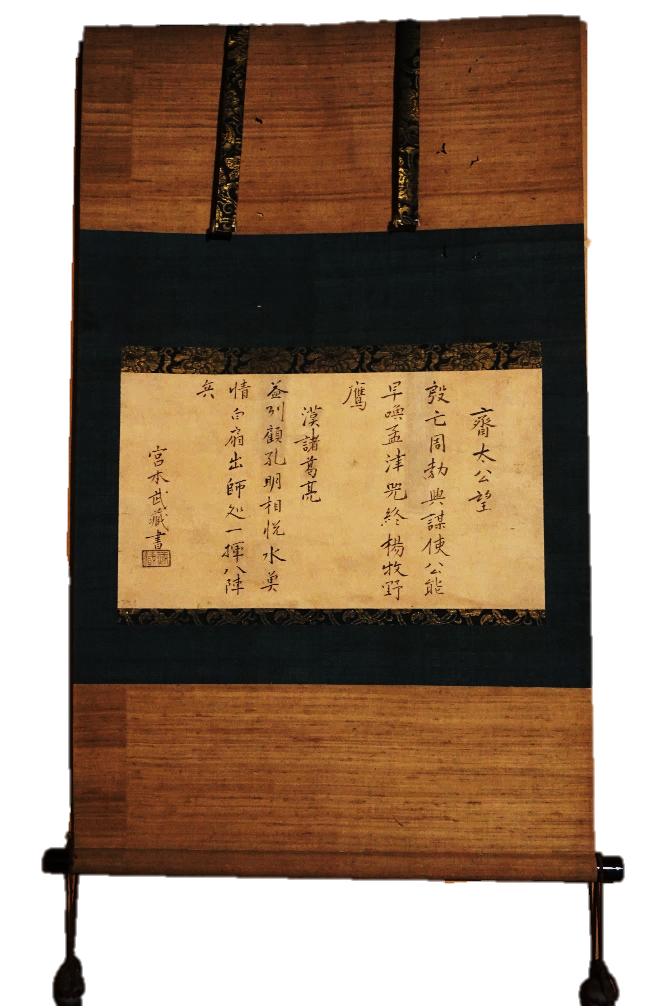 齊太公望
殷亡周勃興謀使公能
早喚孟津兕終楊牧野
鷹
漢諸葛亮
益州顧孔明相悦水莫
情白扇出師処一揮八陣
兵
宮本武蔵書